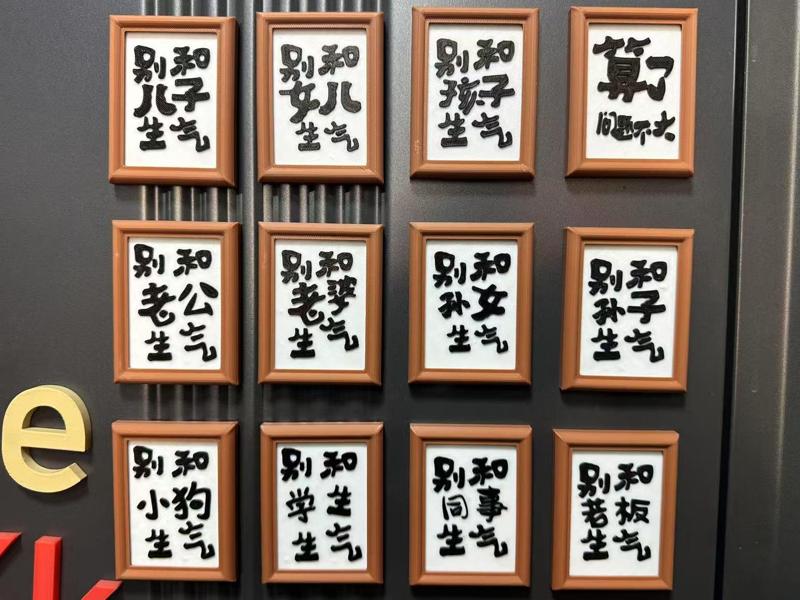 别和
儿子
生气
别和
女儿
生气
别和
孩子
生气
算了
问题不大
别和
老公
生气
别和
老婆
生气
别和
孙女
生气
别和
孙子
生气
e
别和
小狗
生气
别和
学生
生气
别和
同事
生气
别和
老板
生气